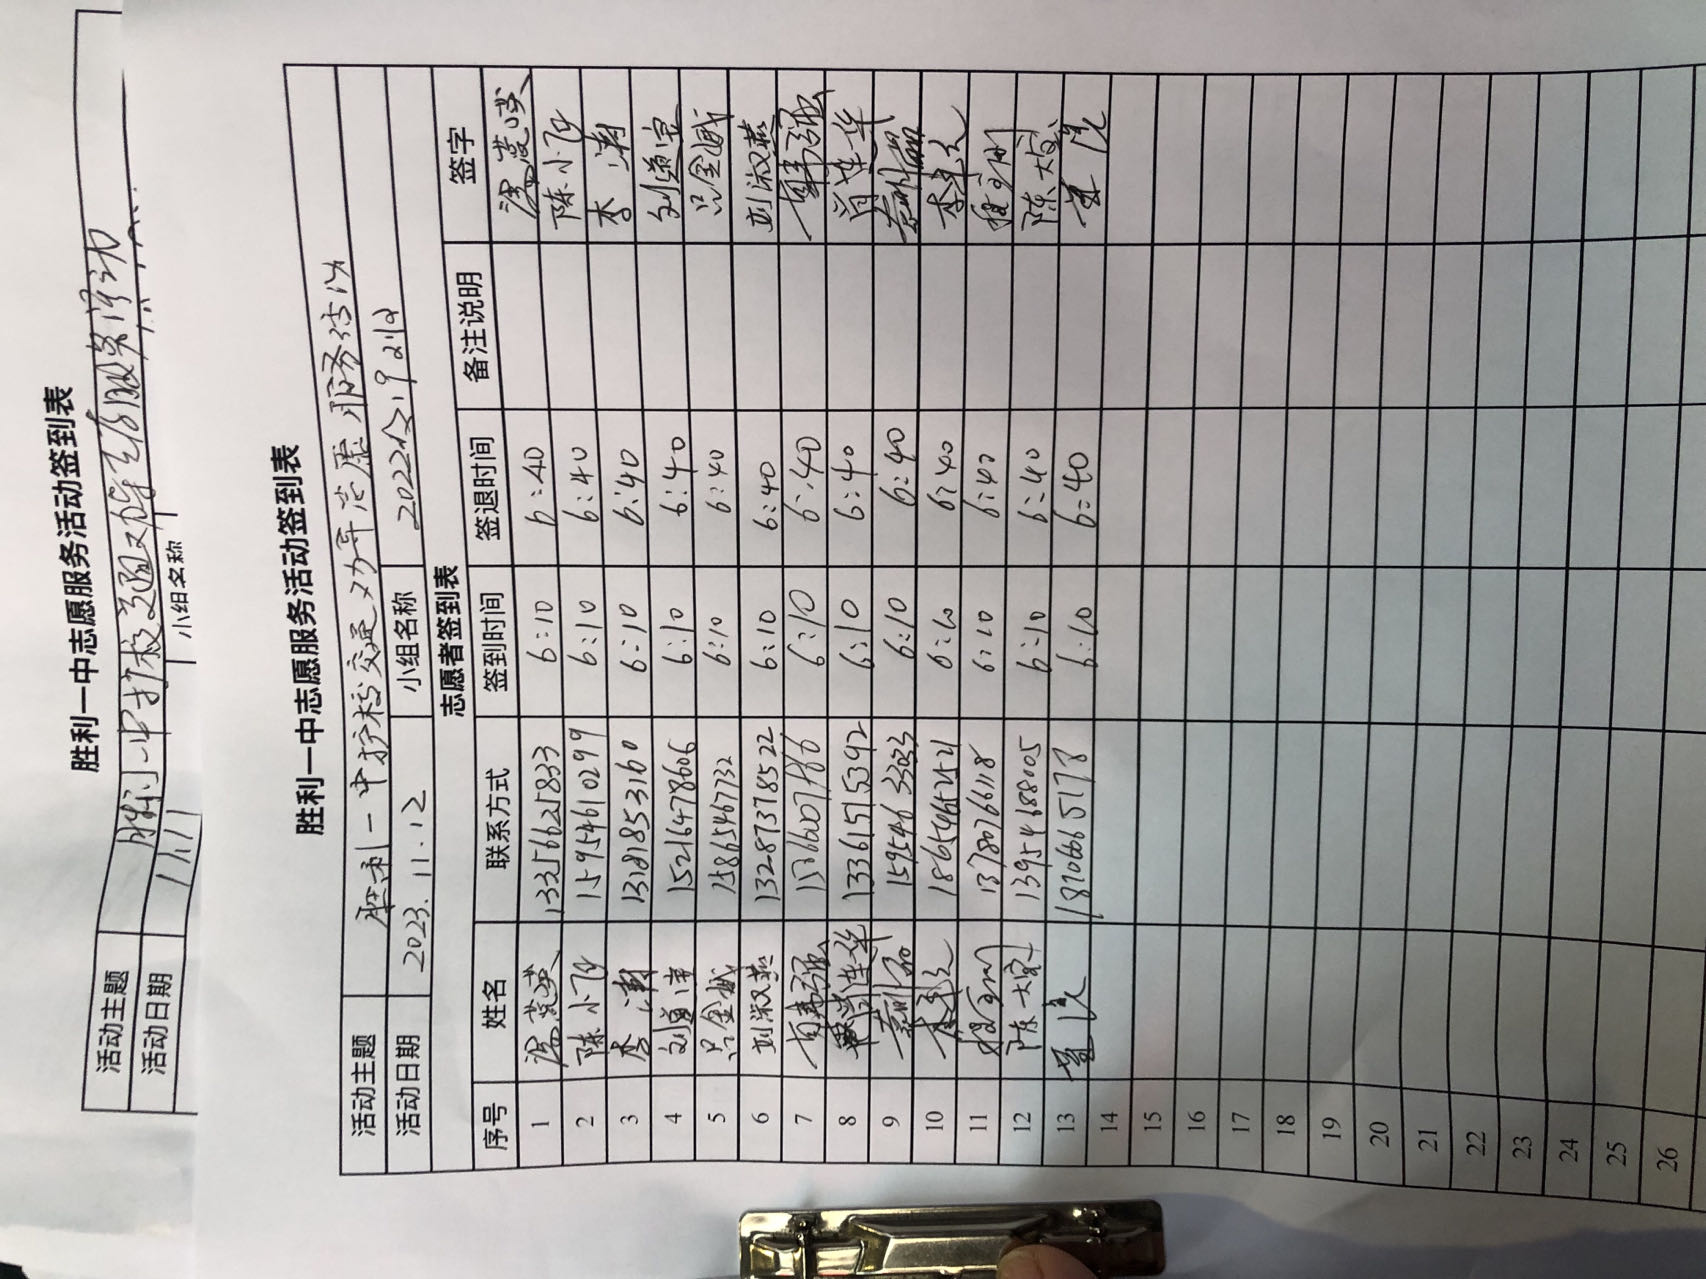 胜利一中志愿服务活动签到表
活动主题 胜利一中护校交通劝导志愿服务活动
活动日期 11.11 小组名称
胜利一中志愿服务活动签到表
活动主题 胜利一中护校交通劝导志愿服务活动
活动日期 2023.11.12 小组名称 2022级19
志愿者签到表
序号 姓名 联系方式 签到时间 签退时间 备注说明 签字
1 13356625833 6:10 6:40
2 陈小飞 15954610299 6:10 6:40 陈小飞
3 李 13181853160 6:10 6:40 李
4 15216478606 6:10 6:40
5 吕金斌 15865467732 6:10 6:40 吕金斌
6 刘淑燕 13287378522 6:10 6:40 刘淑燕
7 6:10 6:40
8 13361515392 6:10 6:40
9 15954633033 6:10 6:40
10 6:10 6:40
11 13780766118 6:10 6:40
12 陈大 13954688005 6:10 6:40 陈大
13 18706665178 6:10 6:40
14
15
16
17
18
19
20
21
22
23
24
25
26